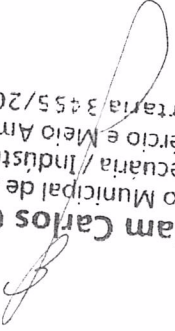 am Carlos
o Municipal de
ecuária / Indústi
ércio e Meio Am
rtaria 3455/20